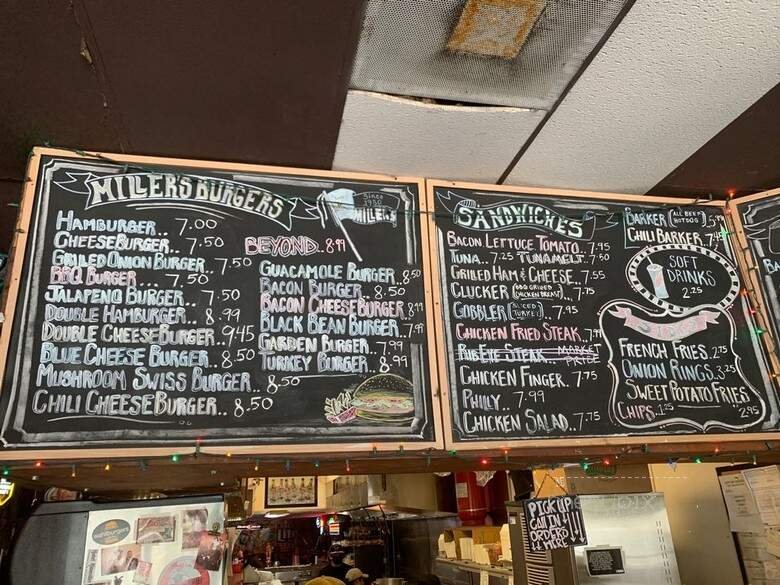 MILLER'S BURGERS
Since 1930 MILLER'S
HAMBURGER.. 7.00
CHEESEBURGER.. 7.50
GRILLED ONION BURGER.. 7.50
BBQ BURGER... 7.50
JALAPENO BURGER.. 7.50
DOUBLE HAMBURGER.. 8.99
DOUBLE CHEESEBURGER.. 9.45
BLUE CHEESE BURGER.. 8.50
MUSHROOM SWISS BURGER.. 8.50
CHILI CHEESEBURGER.. 8.50
BEYOND.. 8.99
GUACAMOLE BURGER.. 8.50
BACON BURGER.. 8.50
BACON CHEESEBURGER 8.99
BLACK BEAN BURGER.. 7.99
GARDEN BURGER.. 7.99
TURKEY BURGER.. 8.99
SANDWICHES
BACON LETTUCE TOMATO.. 7.95
TUNA.. 7.25 TUNAMELT.. 7.50
GRILLED HAM & CHEESE.. 7.55
CLUCKER (BBQ GRILLED CHICKEN BREAST).. 7.75
GOBBLER (SLICED TURKEY).. 7.95
CHICKEN FRIED STEAK.. 7.99
RIBEYE STEAK MARKET PRICE
CHICKEN FINGER.. 7.75
PHILLY.. 7.99
CHICKEN SALAD.. 7.75
BARKER (ALL BEEF HOTDOG)
CHILI BARKER.. 7.45
SOFT DRINKS
2.25
FRENCH FRIES.. 2.75
ONION RINGS.. 3.25
SWEET POTATO FRIES
CHIPS.. 1.25
..2.95
PICK UP &
CALL IN
ORDERS
HERE